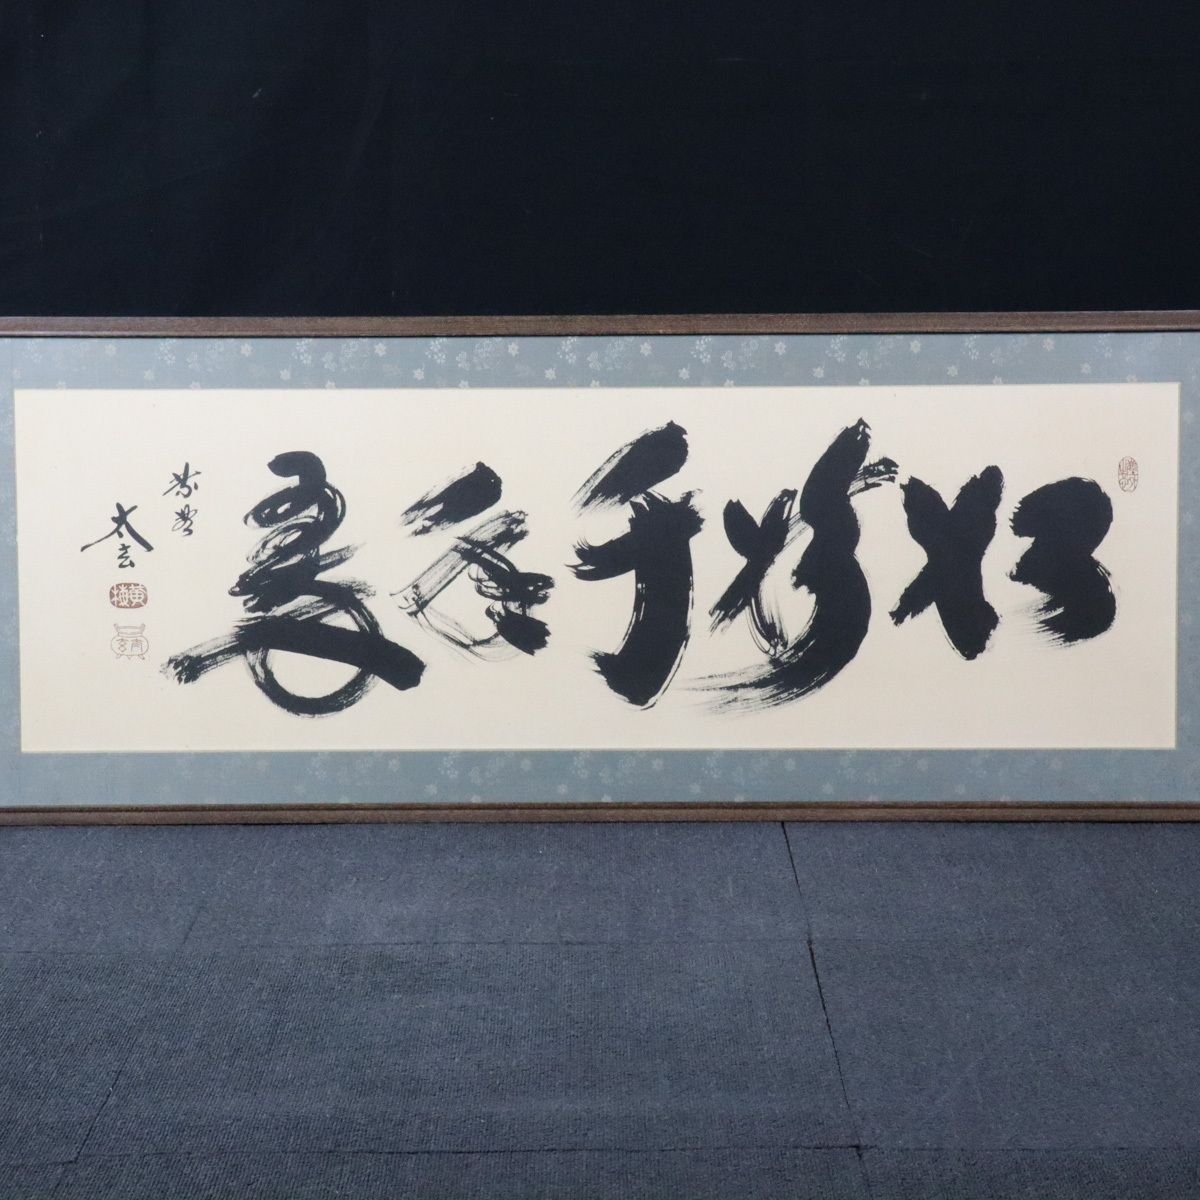 松樹千年翠
紫野
太玄
黄梅